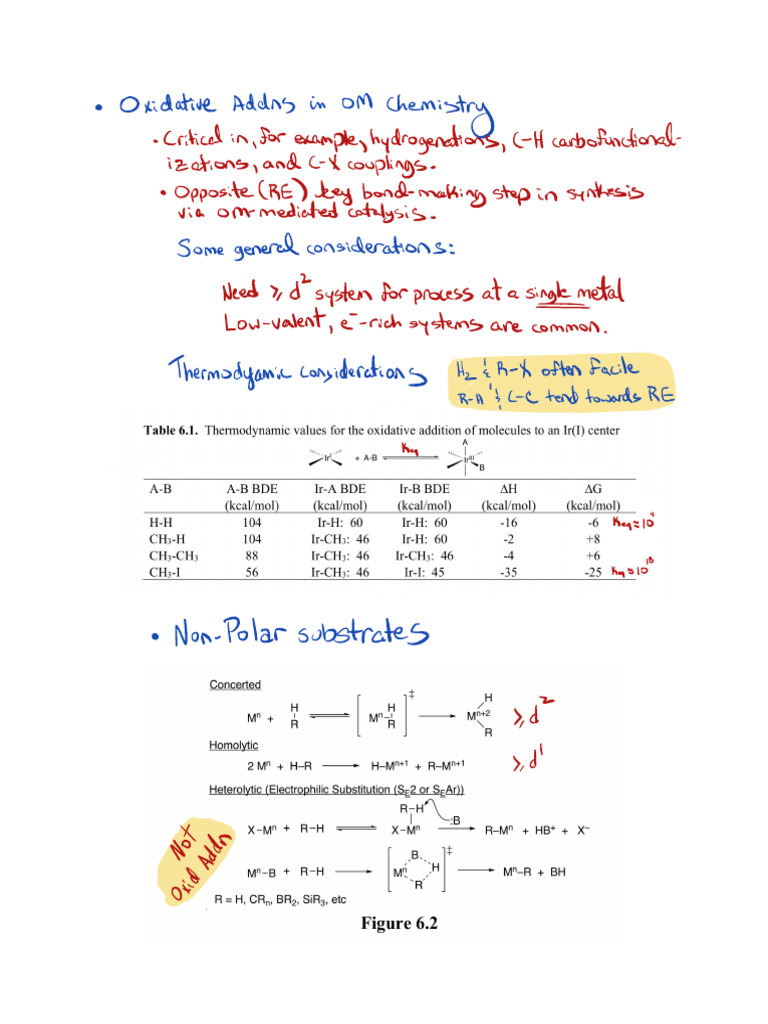 • Oxidative Addns in OM Chemistry
• Critical in, for example, hydrogenations, C-H carbofunctional-
izations, and C-X couplings.
• Opposite (RE) key bond-making step in synthesis
via OM-mediated catalysis.
Some general considerations:
Need ⩾ d² system for process at a single metal
Low-valent, e⁻-rich systems are common.
Thermodyamic considerations
H₂ & R-X often facile
R-H & C-C tend towards RE
Table 6.1. Thermodynamic values for the oxidative addition of molecules to an Ir(I) center
Irᴵ + A-B Keq Irᴵᴵᴵ A B
A-B A-B BDE Ir-A BDE Ir-B BDE ΔH ΔG
(kcal/mol) (kcal/mol) (kcal/mol) (kcal/mol) (kcal/mol)
H-H 104 Ir-H: 60 Ir-H: 60 -16 -6 Keq ≈ 10⁴
CH₃-H 104 Ir-CH₃: 46 Ir-H: 60 -2 +8
CH₃-CH₃ 88 Ir-CH₃: 46 Ir-CH₃: 46 -4 +6
CH₃-I 56 Ir-CH₃: 46 Ir-I: 45 -35 -25 Keq ≈ 10¹⁸
• Non-Polar substrates
Concerted
Mⁿ + H R Mⁿ H R ‡ Mⁿ⁺² H R ⩾ d²
Homolytic
2 Mⁿ + H–R H–Mⁿ⁺¹ + R–Mⁿ⁺¹ ⩾ d¹
Heterolytic (Electrophilic Substitution (SE2 or SEAr))
X–Mⁿ + R–H R–H X–Mⁿ :B R–Mⁿ + HB⁺ + X⁻
Not
Oxid Addn
Mⁿ–B + R–H Mⁿ B H R ‡ Mⁿ–R + BH
R = H, CRₙ, BR₂, SiR₃, etc
Figure 6.2